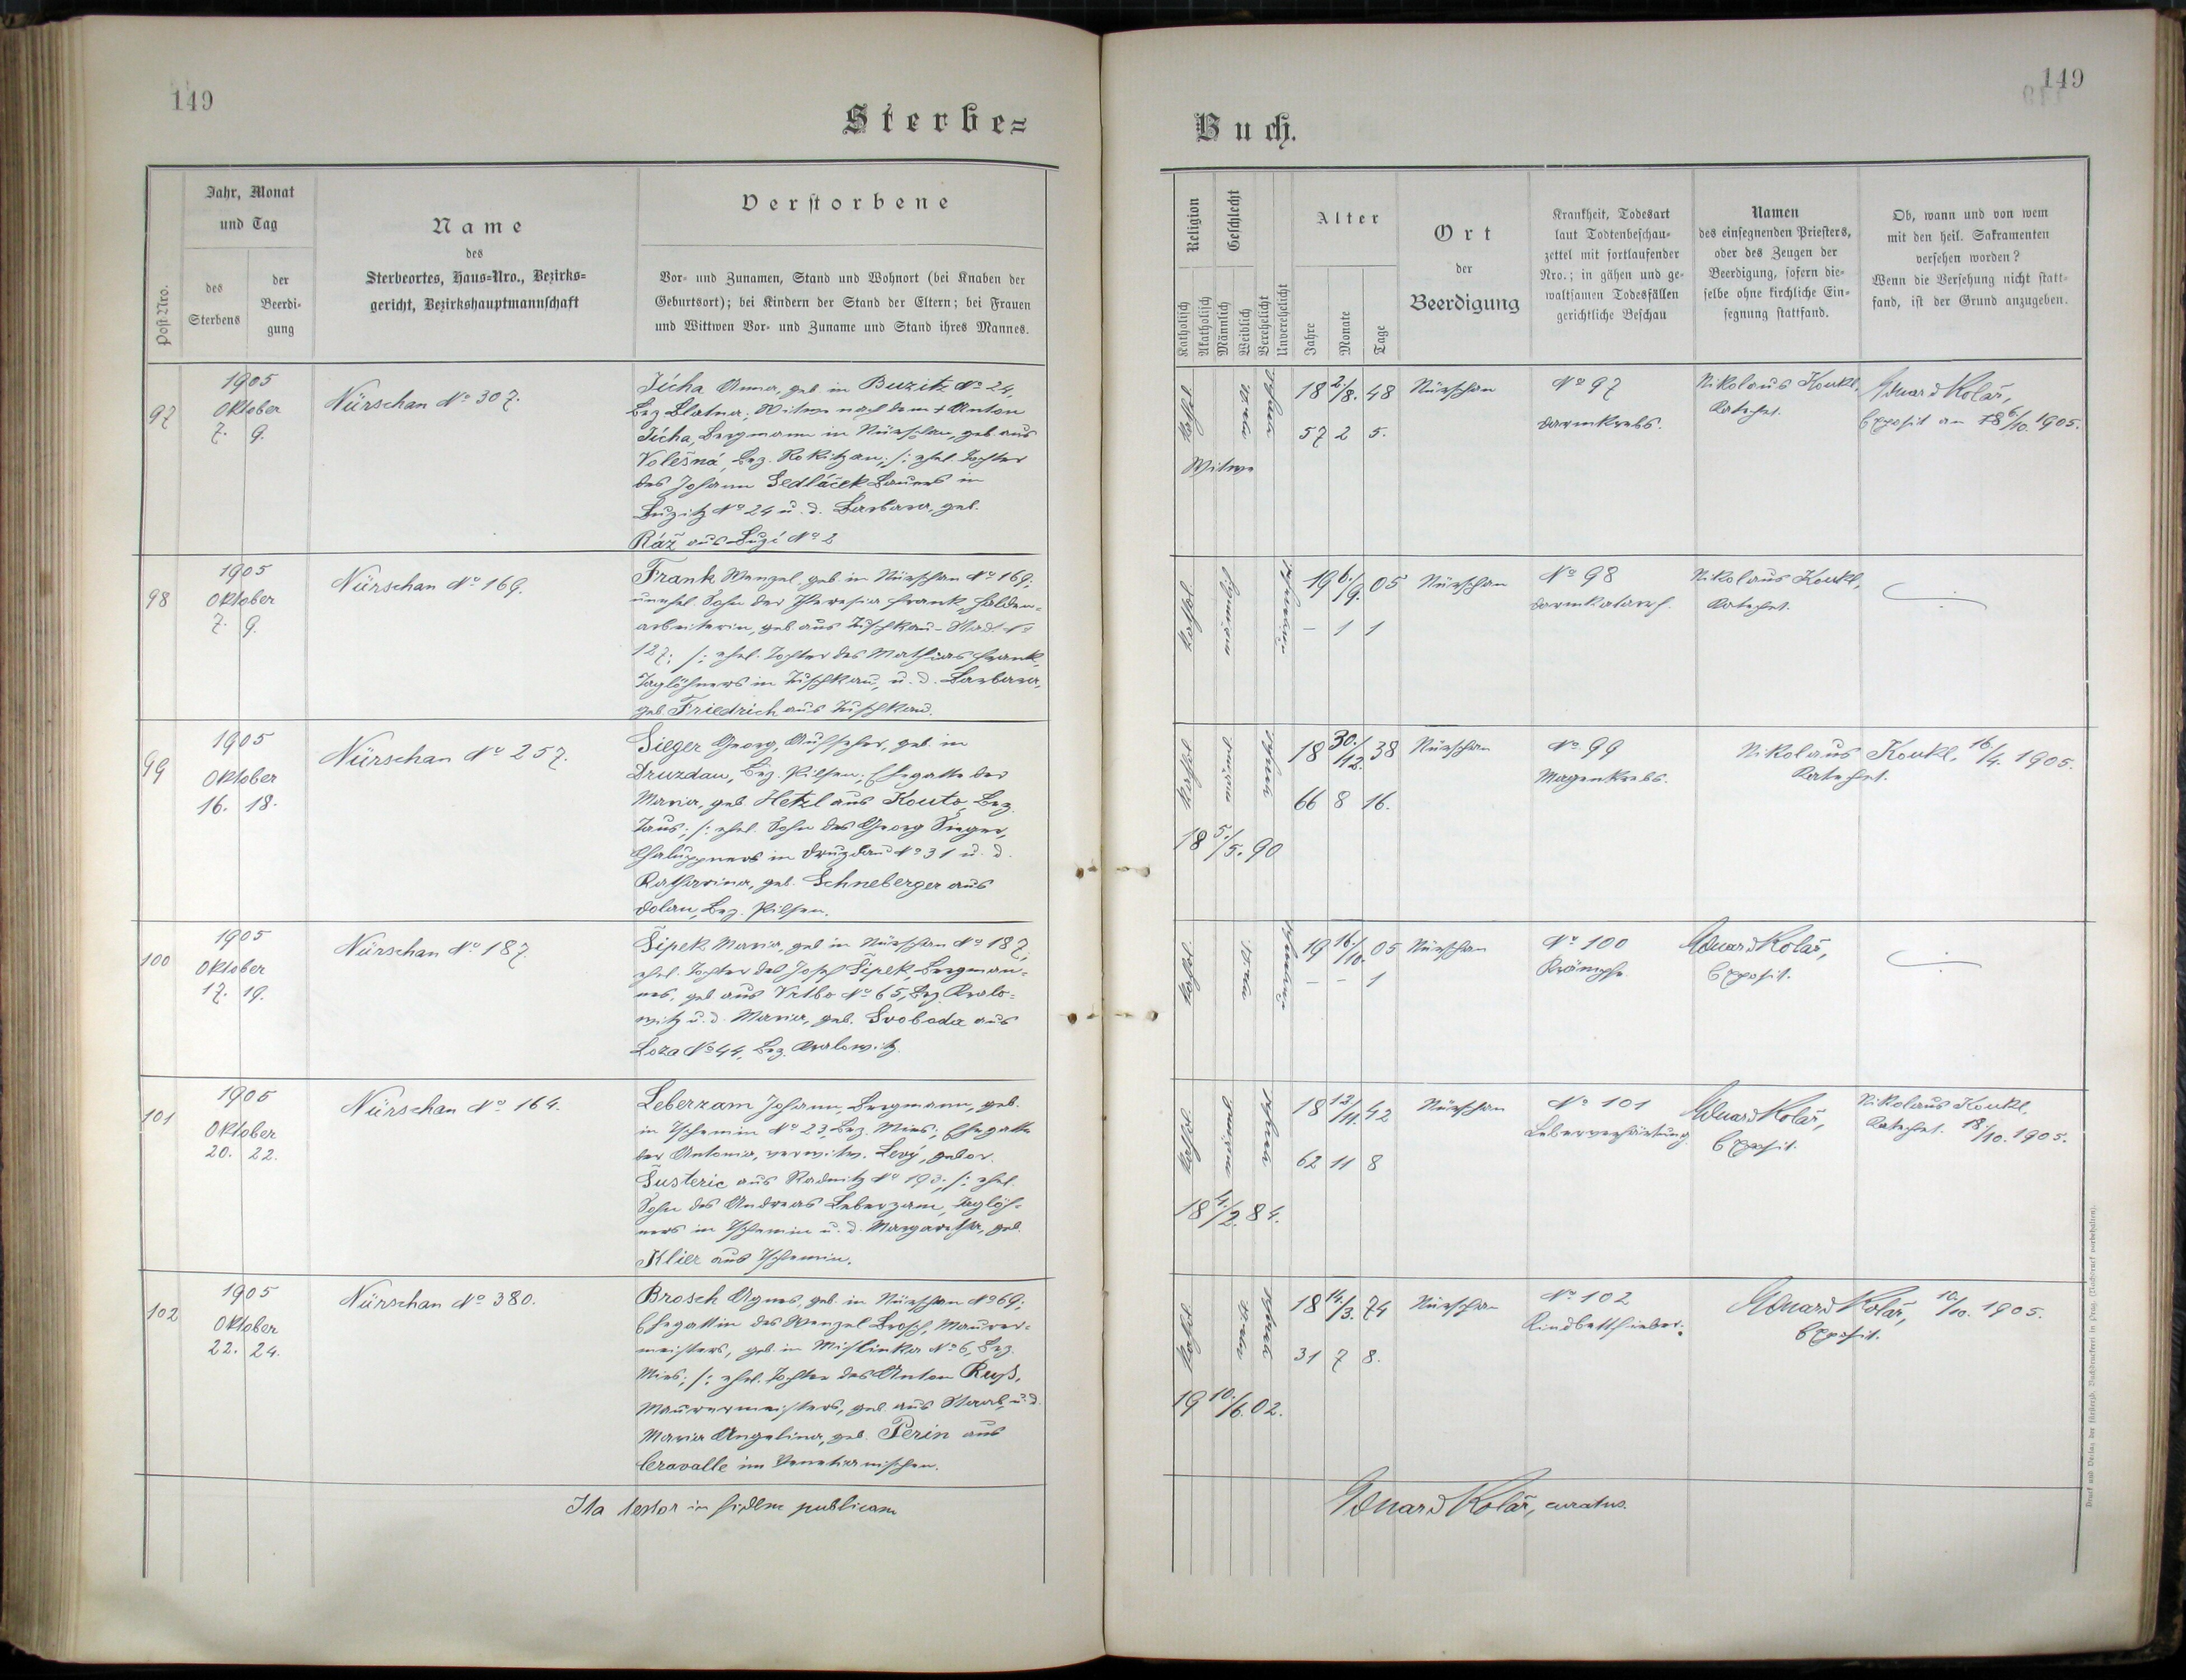 149
Sterbe=
Jahr, Monat
und Tag
des
Sterbens
der
Beerdi-
gung
Post-Nro.
Name
des
Sterbeortes, Haus-Nro., Bezirks=
gericht, Bezirkshauptmannschaft
Verstorbene
Vor- und Zunamen, Stand und Wohnort (bei Knaben der
Geburtsort); bei Kindern der Stand der Eltern; bei Frauen
und Wittwen Vor- und Zuname und Stand ihres Mannes.
97
1905
Oktober
7. 9.
Nürschan No 307.
Jícha Anna, geb. in Buzitz No 24,
Bez. Blatna; Witwe nach dem + Anton
Jícha, Bergmann in Nürschan, geb. aus
Volešná, Bez. Rokitzan; /: ehel. Tochter
des Johann Sedláček Bauers in
Buzitz No 24 u. d. Barbara, geb.
Ráž aus No 2
98
1905
Oktober
7. 9.
Nürschan No 169.
Frank Wenzel, geb. in Nürschan No 169;
unehel. Sohn der Theresia Frank, Halden-
arbeiterin, geb. aus Tuschkau-Stadt No
127; /: ehel. Tochter des Mathias Frank,
Taglöhners in Tuschkau, u. d. Barbara,
geb. Friedrich aus Tuschkau.
99
1905
Oktober
16. 18.
Nürschan No 257.
Sieger Georg, Aufseher, geb. in
Druzdau, Bez. Pilsen; Ehegatte der
Maria, geb. Hetzl aus Kouto, Bez.
Taus; /: ehel. Sohn des Georg Sieger,
Chaluppners in Druzdau No 31 u. d.
Katharina, geb. Schneberger aus
Dolan, Bez. Pilsen.
100
1905
Oktober
17. 19.
Nürschan No 187
Šipek Maria, geb. in Nürschan No 187,
ehel. Tochter des Josef Šipek Bergman-
nes, geb. aus Vrtbo No 65, Bez. Kralo-
witz u. d. Maria, geb. Svoboda aus
Loza No 44, Bez. Kralowitz.
101
1905
Oktober
20. 22.
Nürschan No 164.
Leberzam Johann, Bergmann, geb.
in Tschemin No 23, Bez. Mies; Ehegatte
der Antonia, verwitw. Levý, gebor.
Šusteric aus Radnitz No 193; /: ehel.
Sohn des Andreas Leberzam, Taglöh-
ners in Tschemin u. d. Margaretha, geb.
Klier aus Tschemin.
102
1905
Oktober
22. 24.
Nürschan No 380.
Brosch Agnes, geb. in Nürschan No 69;
Ehegattin des Wenzel Brosch, Maurer-
meisters, geb. in Mislinka No 6, Bez.
Mies; /: ehel. Tochter des Anton Ruß,
Maurermeisters, geb. aus Staab, u. d.
Maria Angelina, geb. Perin aus
Ceravalle im Venetianischen.
Ita testor in fidem publicam
149
Buch.
Religion
Katholisch
Akatholisch
Geschlecht
Männlich
Weiblich
Verehelicht
Unverehelicht
Alter
Jahre
Monate
Tage
Ort
der
Beerdigung
Krankheit, Todesart
laut Todtenbeschau-
zettel mit fortlaufender
Nro.; in gähen und ge-
waltsamen Todesfällen
gerichtliche Beschau
Namen
des einsegnenden Priesters,
oder des Zeugen der
Beerdigung, sofern die-
selbe ohne kirchliche Ein-
segnung stattfand.
Ob, wann und von wem
mit den heil. Sakramenten
versehen worden?
Wenn die Versehung nicht statt-
fand, ist der Grund anzugeben.
18 2./8. 48
57 2 5.
Witwe
Nürschan
No 97
Darmkrebs.
Nikolaus Koukl,
Katechet.
Eduard Kolář,
Exposit am 6/10. 1905.
19 6./9. 05
– 1 1
Nürschan
No 98
Darmkatarrh.
Nikolaus Koukl,
Katechet.
18 30./12. 38
66 8 16.
18 5./5. 90
Nürschan
No 99
Magenkrebs.
Nikolaus Koukl, 16./4. 1905.
Katechet.
19 16./10. 05
– – 1
Nürschan
No 100
Krämpfe
Eduard Kolář,
Exposit.
18 12./11. 42
62 11 8
18 4./2. 84.
Nürschan
No 101
Leberverhärtung.
Eduard Kolář,
Exposit.
Nikolaus Koukl,
Katechet. 18./10. 1905.
18 14./3. 74
31 7 8.
19 10./6. 02.
Nürschan
No 102
Kindbettfieber.
Eduard Kolář, 10./10. 1905.
Exposit.
Eduard Kolář, curatus.